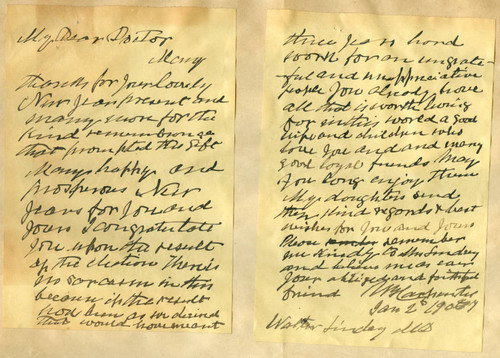 My Dear Doctor
Many
thanks for your lovely
New Years present and
many more for the
kind remembrance
that prompted the gift
Many happy and
prosperous New
Years for you and
yours I congratulate
you upon the result
of the election There is
no sarcasm in this
because if the result
had been as we desired
that would have meant
three years hard
work for an ungrate-
ful and unappreciative
people you already have
all that is worth living
for in this world a good
wife and children who
love you and many
good loyal friends May
you long enjoy them
My daughters send
their kind regards & best
wishes for you and yours
Please remember
me kindly to Mrs Lindley
and believe me as ever
your obliged and faithful
friend Carpenter
Jan 2
Walter Lindley MD